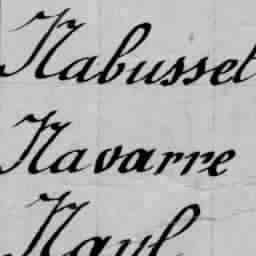 Nabusset
Navarre
Nayl